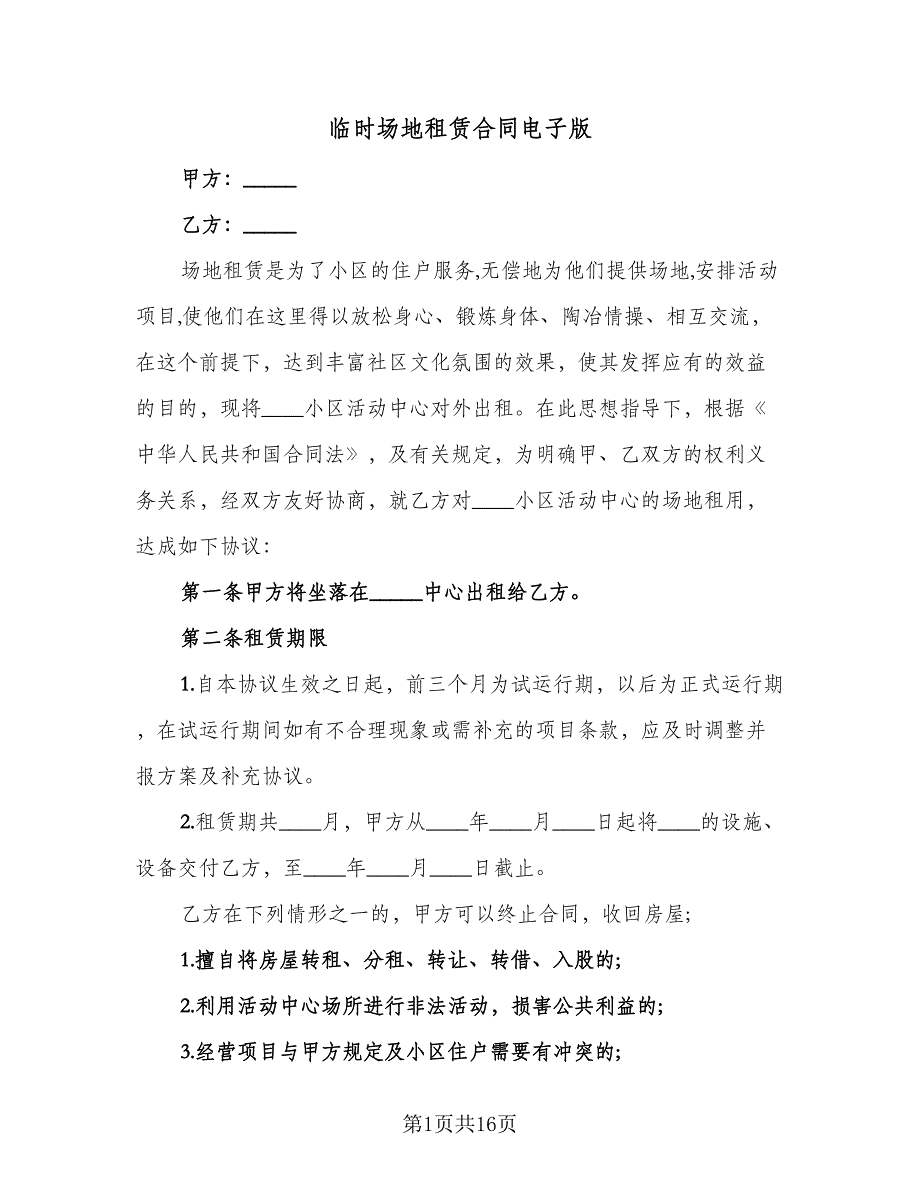 临时场地租赁合同电子版
甲方：_____
乙方：_____
场地租赁是为了小区的住户服务,无偿地为他们提供场地,安排活动
项目,使他们在这里得以放松身心、锻炼身体、陶冶情操、相互交流，
在这个前提下，达到丰富社区文化氛围的效果，使其发挥应有的效益
的目的，现将____小区活动中心对外出租。在此思想指导下，根据《
中华人民共和国合同法》，及有关规定，为明确甲、乙双方的权利义
务关系，经双方友好协商，就乙方对____小区活动中心的场地租用，
达成如下协议：
第一条甲方将坐落在_____中心出租给乙方。
第二条租赁期限
1.自本协议生效之日起，前三个月为试运行期，以后为正式运行期
，在试运行期间如有不合理现象或需补充的项目条款，应及时调整并
报方案及补充协议。
2.租赁期共____月，甲方从____年____月____日起将____的设施、
设备交付乙方，至____年____月____日截止。
乙方在下列情形之一的，甲方可以终止合同，收回房屋;
1.擅自将房屋转租、分租、转让、转借、入股的;
2.利用活动中心场所进行非法活动，损害公共利益的;
3.经营项目与甲方规定及小区住户需要有冲突的;
第1页共16页